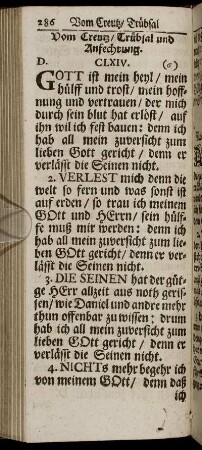 286 Vom Creutz/ Trübsal
Vom Creutz/ Trübsal und
Anfechtung.
D. CLXIV. (6)
GOTT ist mein heyl/ mein
hülff und trost/ mein hoff-
nung und vertrauen/ der mich
durch sein blut hat erlöst/ auf
ihn wil ich fest bauen: denn ich
hab all mein zuversicht zum
lieben Gott gericht/ denn er
verläst die Seinen nicht.
2. VERLEST mich denn die
welt so fern und was sonst ist
auf erden/ so trau ich meinem
GOtt und HErrn/ sein hülf-
fe muß mir werden: denn ich
hab all mein zuversicht zum lie-
ben GOtt gericht/ denn er ver-
läst die Seinen nicht.
3. DIE SEINEN hat der güt-
ge HErr allzeit aus noth geris-
sen/ wie Daniel und andre mehr
thun offenbar zu wissen: drum
hab ich all mein zuversicht zum
lieben GOtt gericht/ denn er
verläst die Seinen nicht.
4. NICHTs mehr begehr ich
von meinem GOtt/ denn daß
ich